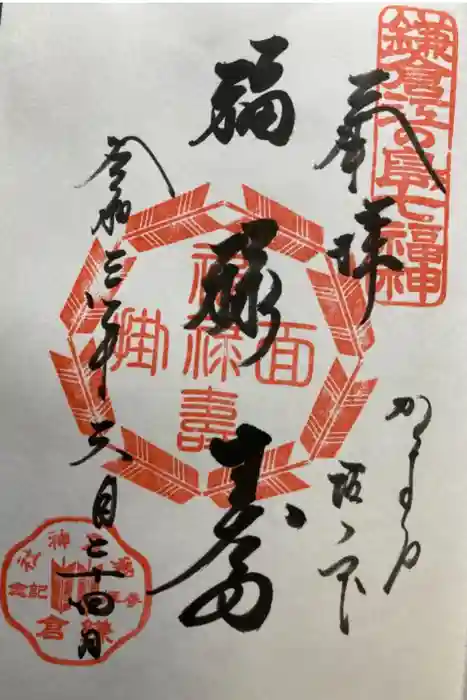 鎌倉江の島七福神
奉拝
かまくら
坂ノ下
福祿壽
福祿壽
面掛
令和三年六月二十四日
神社
記念
鎌倉